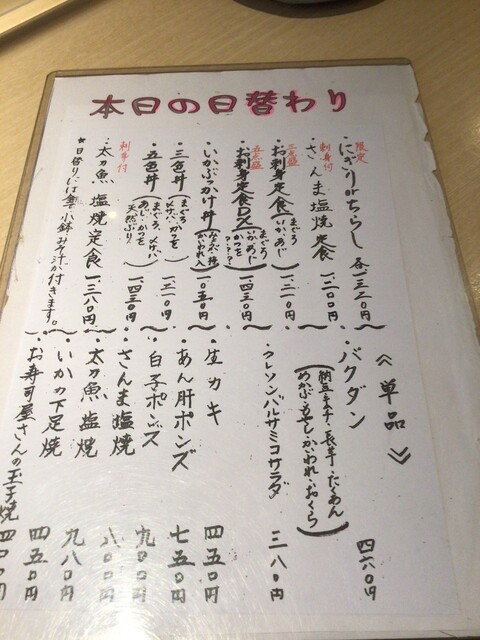 本日の日替わり
限定
・にぎりorちらし 各一、三二〇円
刺身付
・さんま塩焼定食 一、二〇〇円
三点盛
・お刺身定食(まぐろ いか、あじ) 一、二一〇円
五点盛
・お刺身定食DX(まぐろ いか、あじ かつを ????) 一、四三〇円
・いかぶっかけ丼 一、〇五〇円
・三色丼(まぐろ、かつを 〆サバ) 一、二一〇円
・五色丼(まぐろ、〆サバ あじ、かつを 天然ぶり) 一、四三〇円
刺身付
・太刀魚塩焼定食 一、三八〇円
*日替りは全て小鉢みそ汁が付きます。
≪単品≫
・バクダン
(納豆、まぐろ、長芋、たくあん めかぶ、もやし、かいわれ、おくら) 四六〇円
・クレソンバルサミコサラダ 三八〇円
・生カキ 四五〇円
・あん肝ポンズ 七五〇円
・白子ポンズ 九〇〇円
・さんま塩焼 八〇〇円
・太刀魚塩焼 九八〇円
・いかの下足焼 四五〇円
・お寿司屋さんの玉子焼 四〇〇円